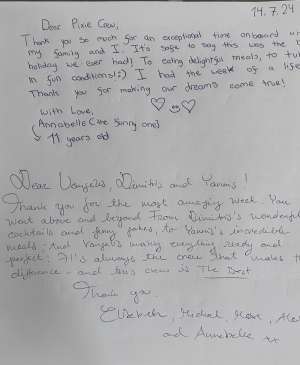 14.7.24
Dear Pixie Crew,
Thank you so much for an exceptional time onboard
my family and I. It's safe to say this was the
holiday we ever had! To eating delightful meals, to
in fun conditions!:) I had the week of a
Thank you for making our dreams come true!
with Love,
Annabelle (the funny one)
11 years old
Dear Vangelis, Dimitris and Yannis!
Thank you for the most amazing week. You
went above and beyond. From Dimitris's wonderful
cocktails and funny jokes, to Yannis's incredible
meals, and Vangelis making everything ready and
perfect. It's always the crew that makes
difference - and this crew is The Best
Thank you
Elizabeth, Michael,
and Annabelle xx